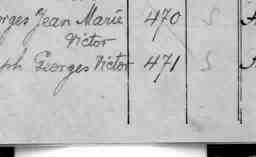 orges Jean Marie 470 S
Victor
ph Georges Victor 471 S